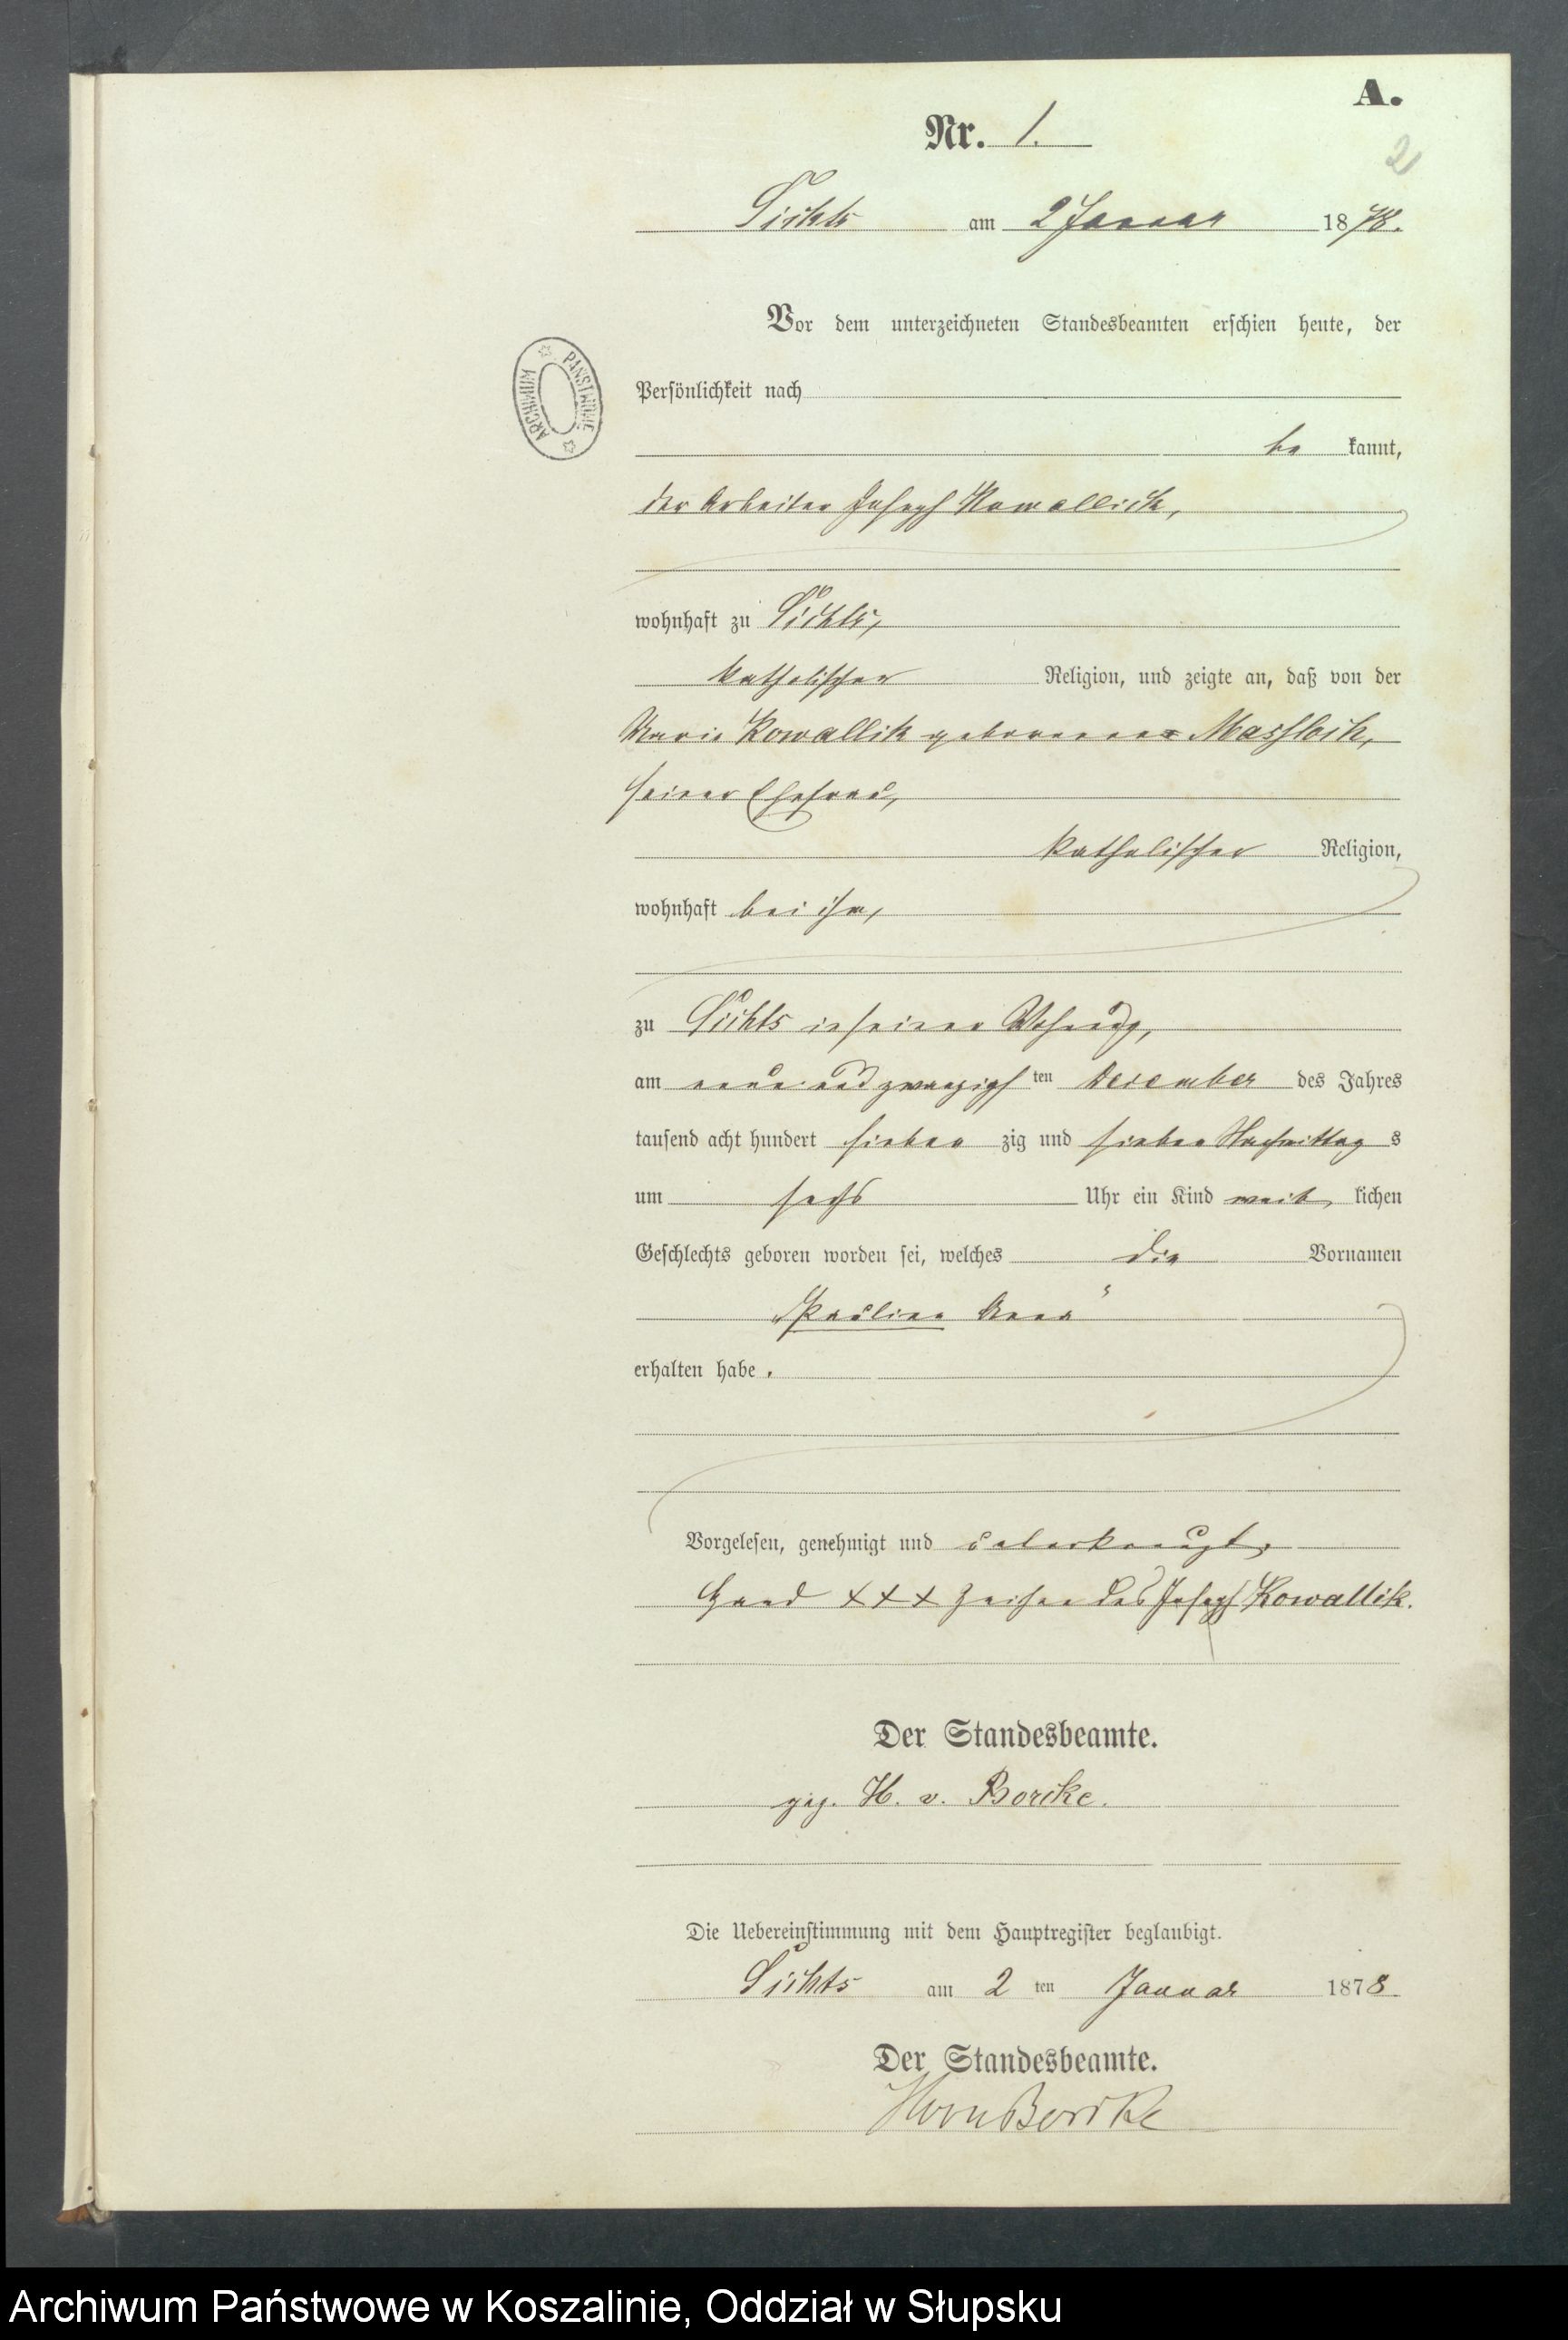 A.
Nr. 1.
2
Lichts am 2 Januar 1878.
Vor dem unterzeichneten Standesbeamten erschien heute, der
Persönlichkeit nach
be kannt,
der Arbeiter Joseph Kowallick,
wohnhaft zu
katholischer Religion, und zeigte an, daß von der
Marie Kowallik geborenen Maschloik,
seiner Ehefrau,
katholischer Religion,
wohnhaft bei ihm,
zu in seiner Wohnung,
am neun und zwanzigsten Dezember des Jahres
tausend acht hundert sieben zig und sieben Nachmittag s
um sechs Uhr ein Kind weib lichen
Geschlechts geboren worden sei, welches die Vornamen
„Pauline Anna“
erhalten habe.
Vorgelesen, genehmigt und unterkreuzt,
Hand XXX Zeichen des Joseph Kowallik.
Der Standesbeamte.
gez. H. v. Borcke.
Die Uebereinstimmung mit dem Hauptregister beglaubigt.
am 2 ten Januar 1878
Der Standesbeamte.
HvonBorcke
ARCHIWUM PAŃSTWOWE
Archiwum Państwowe w Koszalinie, Oddział w Słupsku